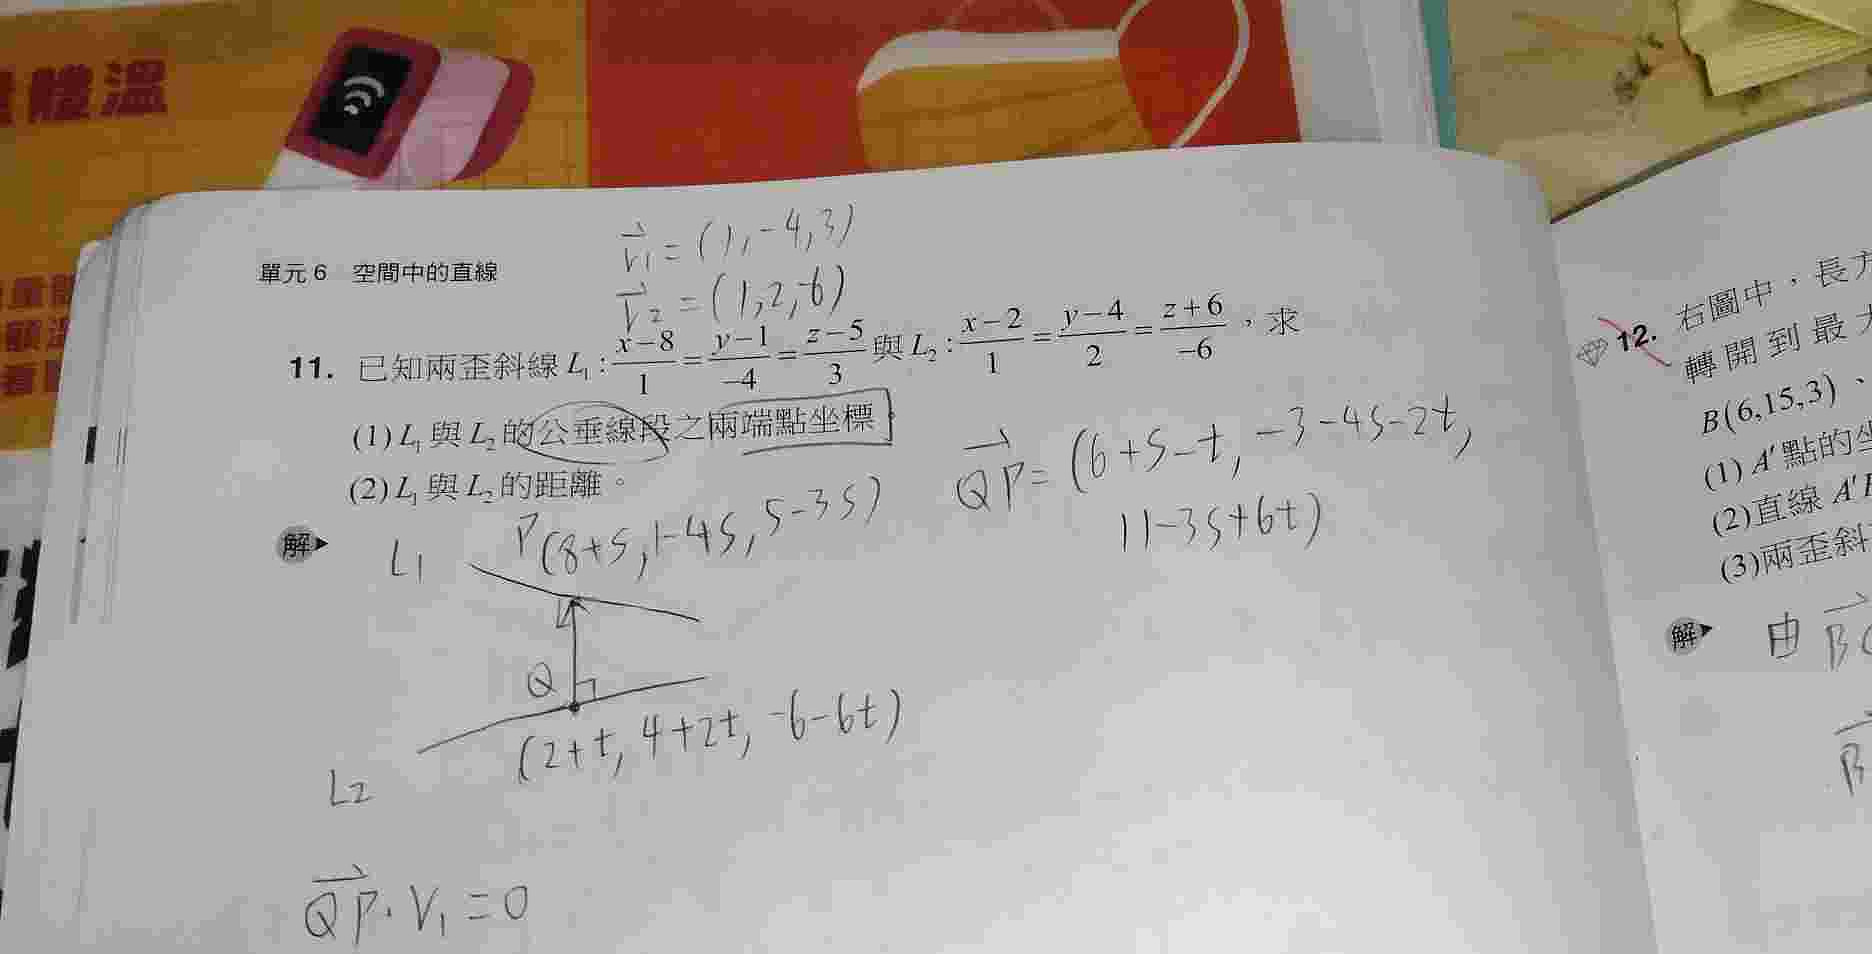 體溫
單元 6 空間中的直線
v₁ = (1, -4, 3)
v₂ = (1, 2, -6)
11. 已知兩歪斜線 L₁ : (x-8)/1 = (y-1)/-4 = (z-5)/3 與 L₂ : (x-2)/1 = (y-4)/2 = (z+6)/-6，求
(1) L₁ 與 L₂ 的公垂線段之兩端點坐標。
(2) L₁ 與 L₂ 的距離。
QP = (6+s-t, -3-4s-2t,
11-3s+6t)
解
L₁
P(8+s, 1-4s, 5-3s)
Q
(2+t, 4+2t, -6-6t)
L₂
QP · V₁ = 0
12. 右圖中，長方
轉開到最大
B(6,15,3)、
(1) A′點的坐
(2)直線 A′
(3)兩歪斜
解
由 B
B